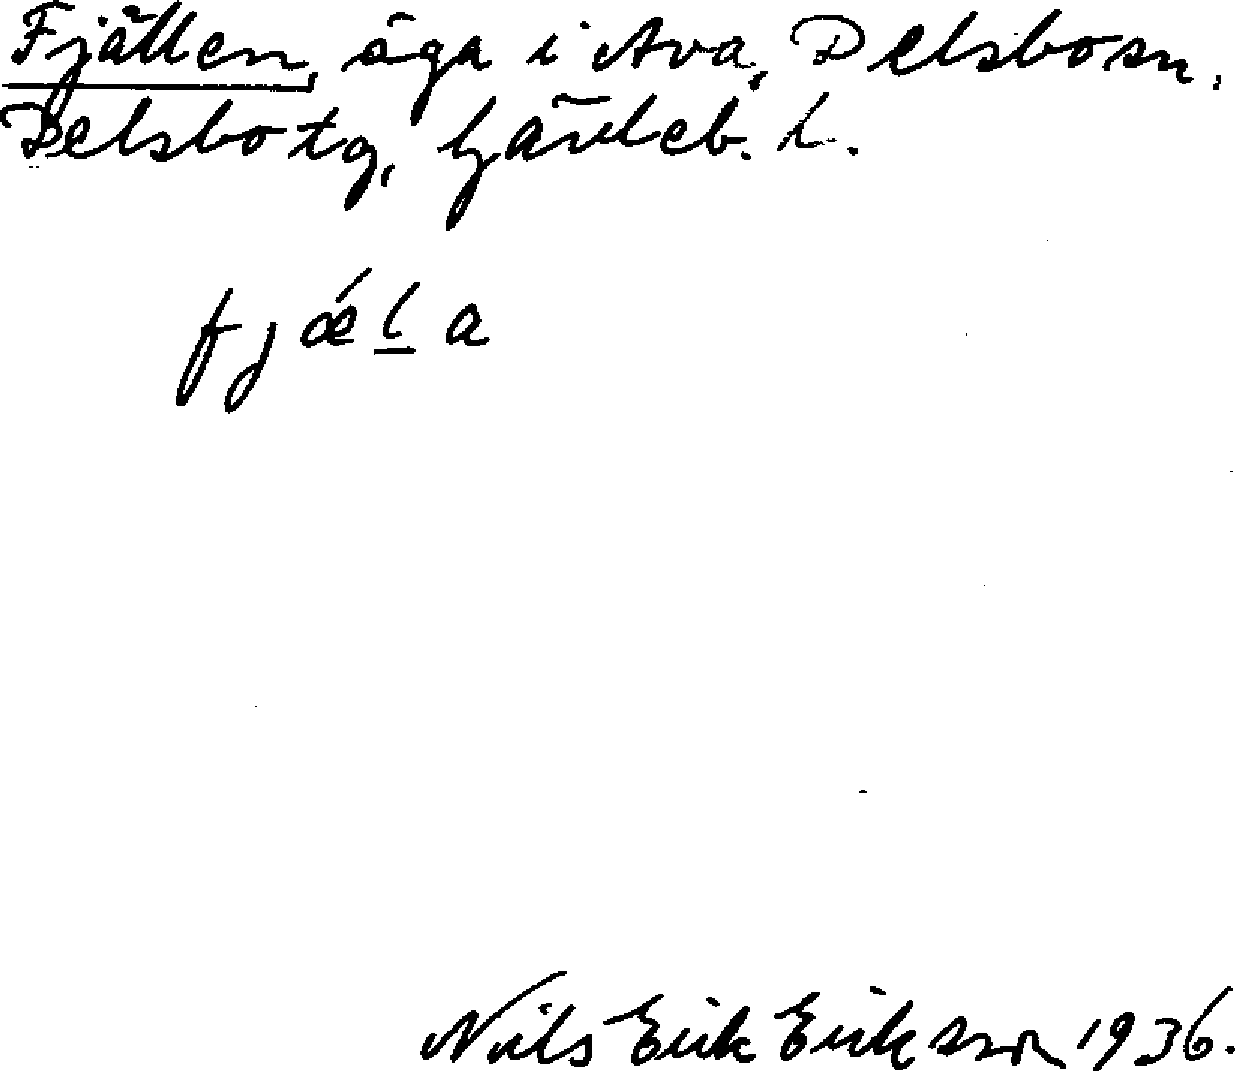 Fjällen, äga i Ava, Delsbo sn,
Delsbo tg, Gävleb. l.
fjǽl̲a
Nils Erik Eriksson 1936.